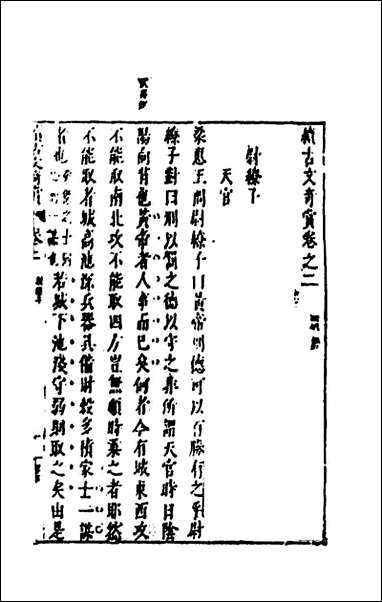 續古文奇賞卷之二
尉繚子
天官
梁惠王問尉繚子曰黃帝刑德可以百勝有之乎尉
繚子對曰刑以伐之德以守之非所謂天官時日陰
陽向背也黃帝者人事而已矣何者今有城東西攻
不能取南北攻不能取四方豈無順時乘之者耶然
不能取者城高池深兵器孔備財穀多積豪士一謀
者也若城下池淺守弱則取之矣由是